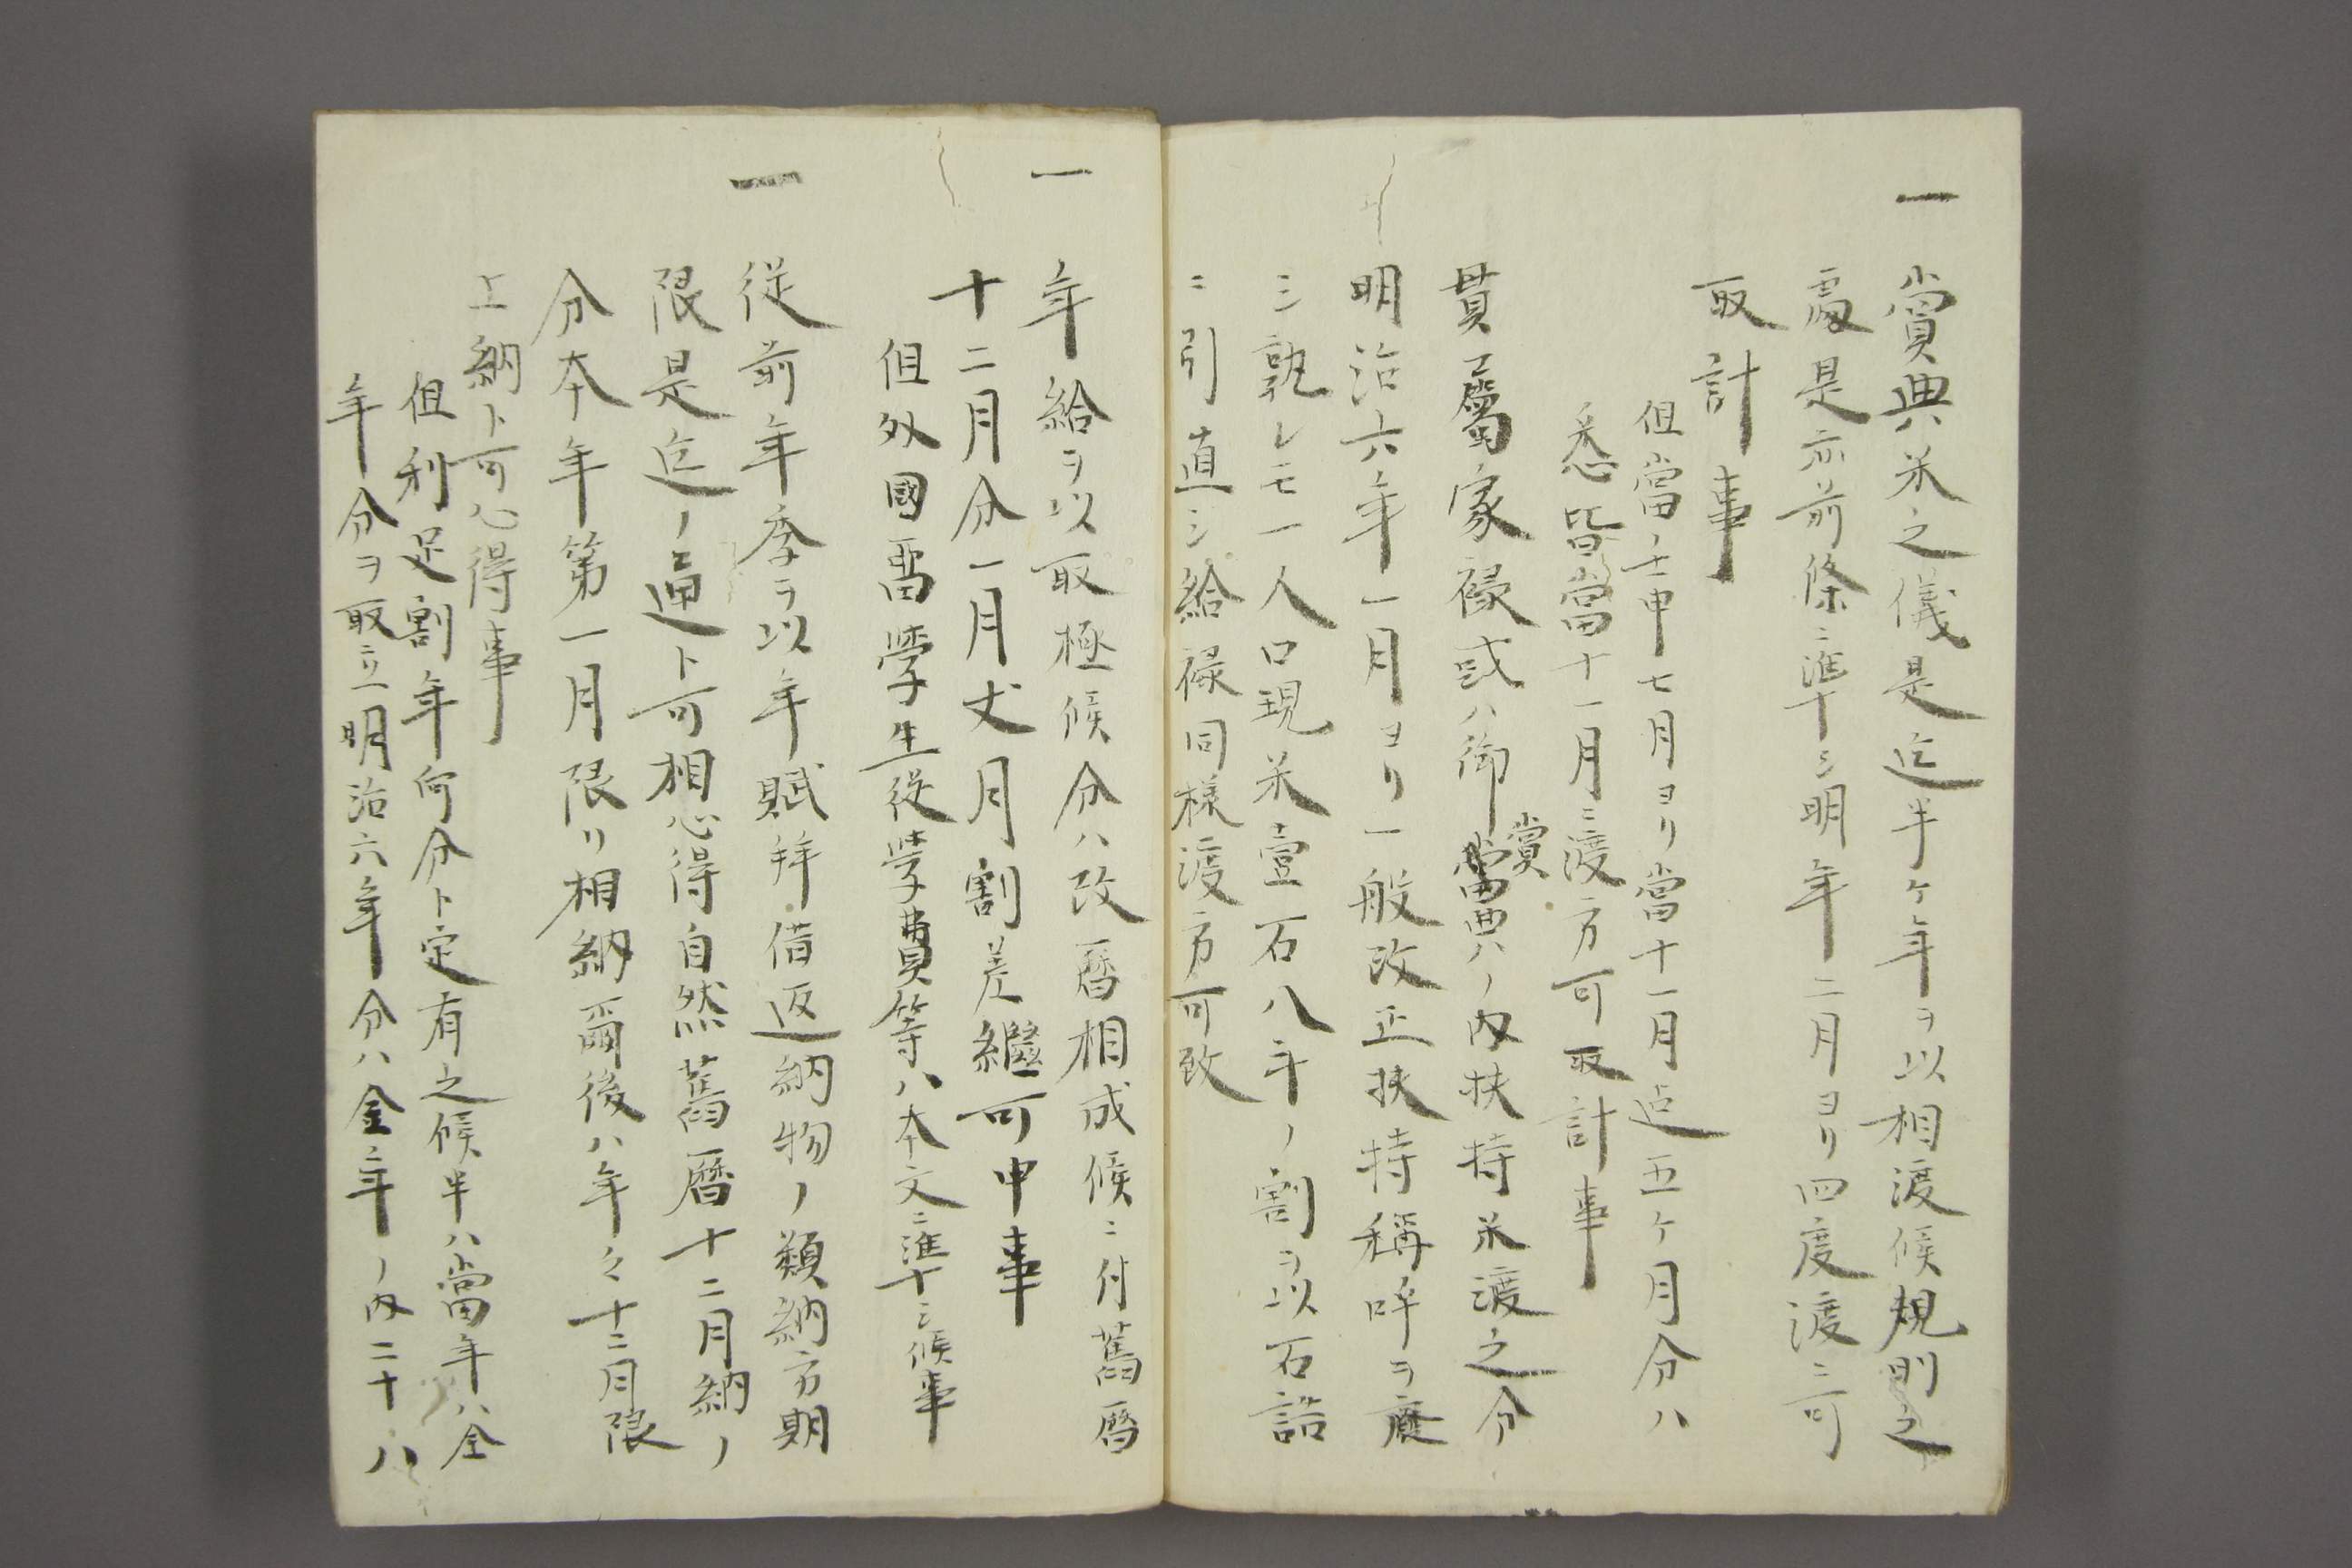 一 賞典米之儀是迄半ケ年ヲ以相渡候規則之
處是亦前條ニ準シ明年二月ヨリ四度渡ニ可
取計事
但當ノ壬申七月ヨリ當十一月迄五ケ月分ハ
悉皆當十一月ニ渡方可取計事
貫属家禄或ハ御賞典ノ内扶持米渡之分
明治六年一月ヨリ一般改正扶持稱呼ヲ廢
シ孰レモ一人口現米壹石八斗ノ割ヲ以石詰
ニ引直シ給禄同様渡方可致
一 年給ヲ以取極候分ハ改暦相成候ニ付舊暦
十二月分一月丈月割差繼可申事
但外國留學生從學費等ハ本文ニ準シ候事
一 從前年季ヲ以年賦拜借返納物ノ類納方期
限是迄ノ通ト可相心得自然舊暦十二月納ノ
分本年第一月限リ相納爾後ハ年々十二月限
上納ト可心得事
但利足割年何分ト定有之候半ハ當年ハ全
年分ヲ取立明治六年分ハ金年ノ内二十八